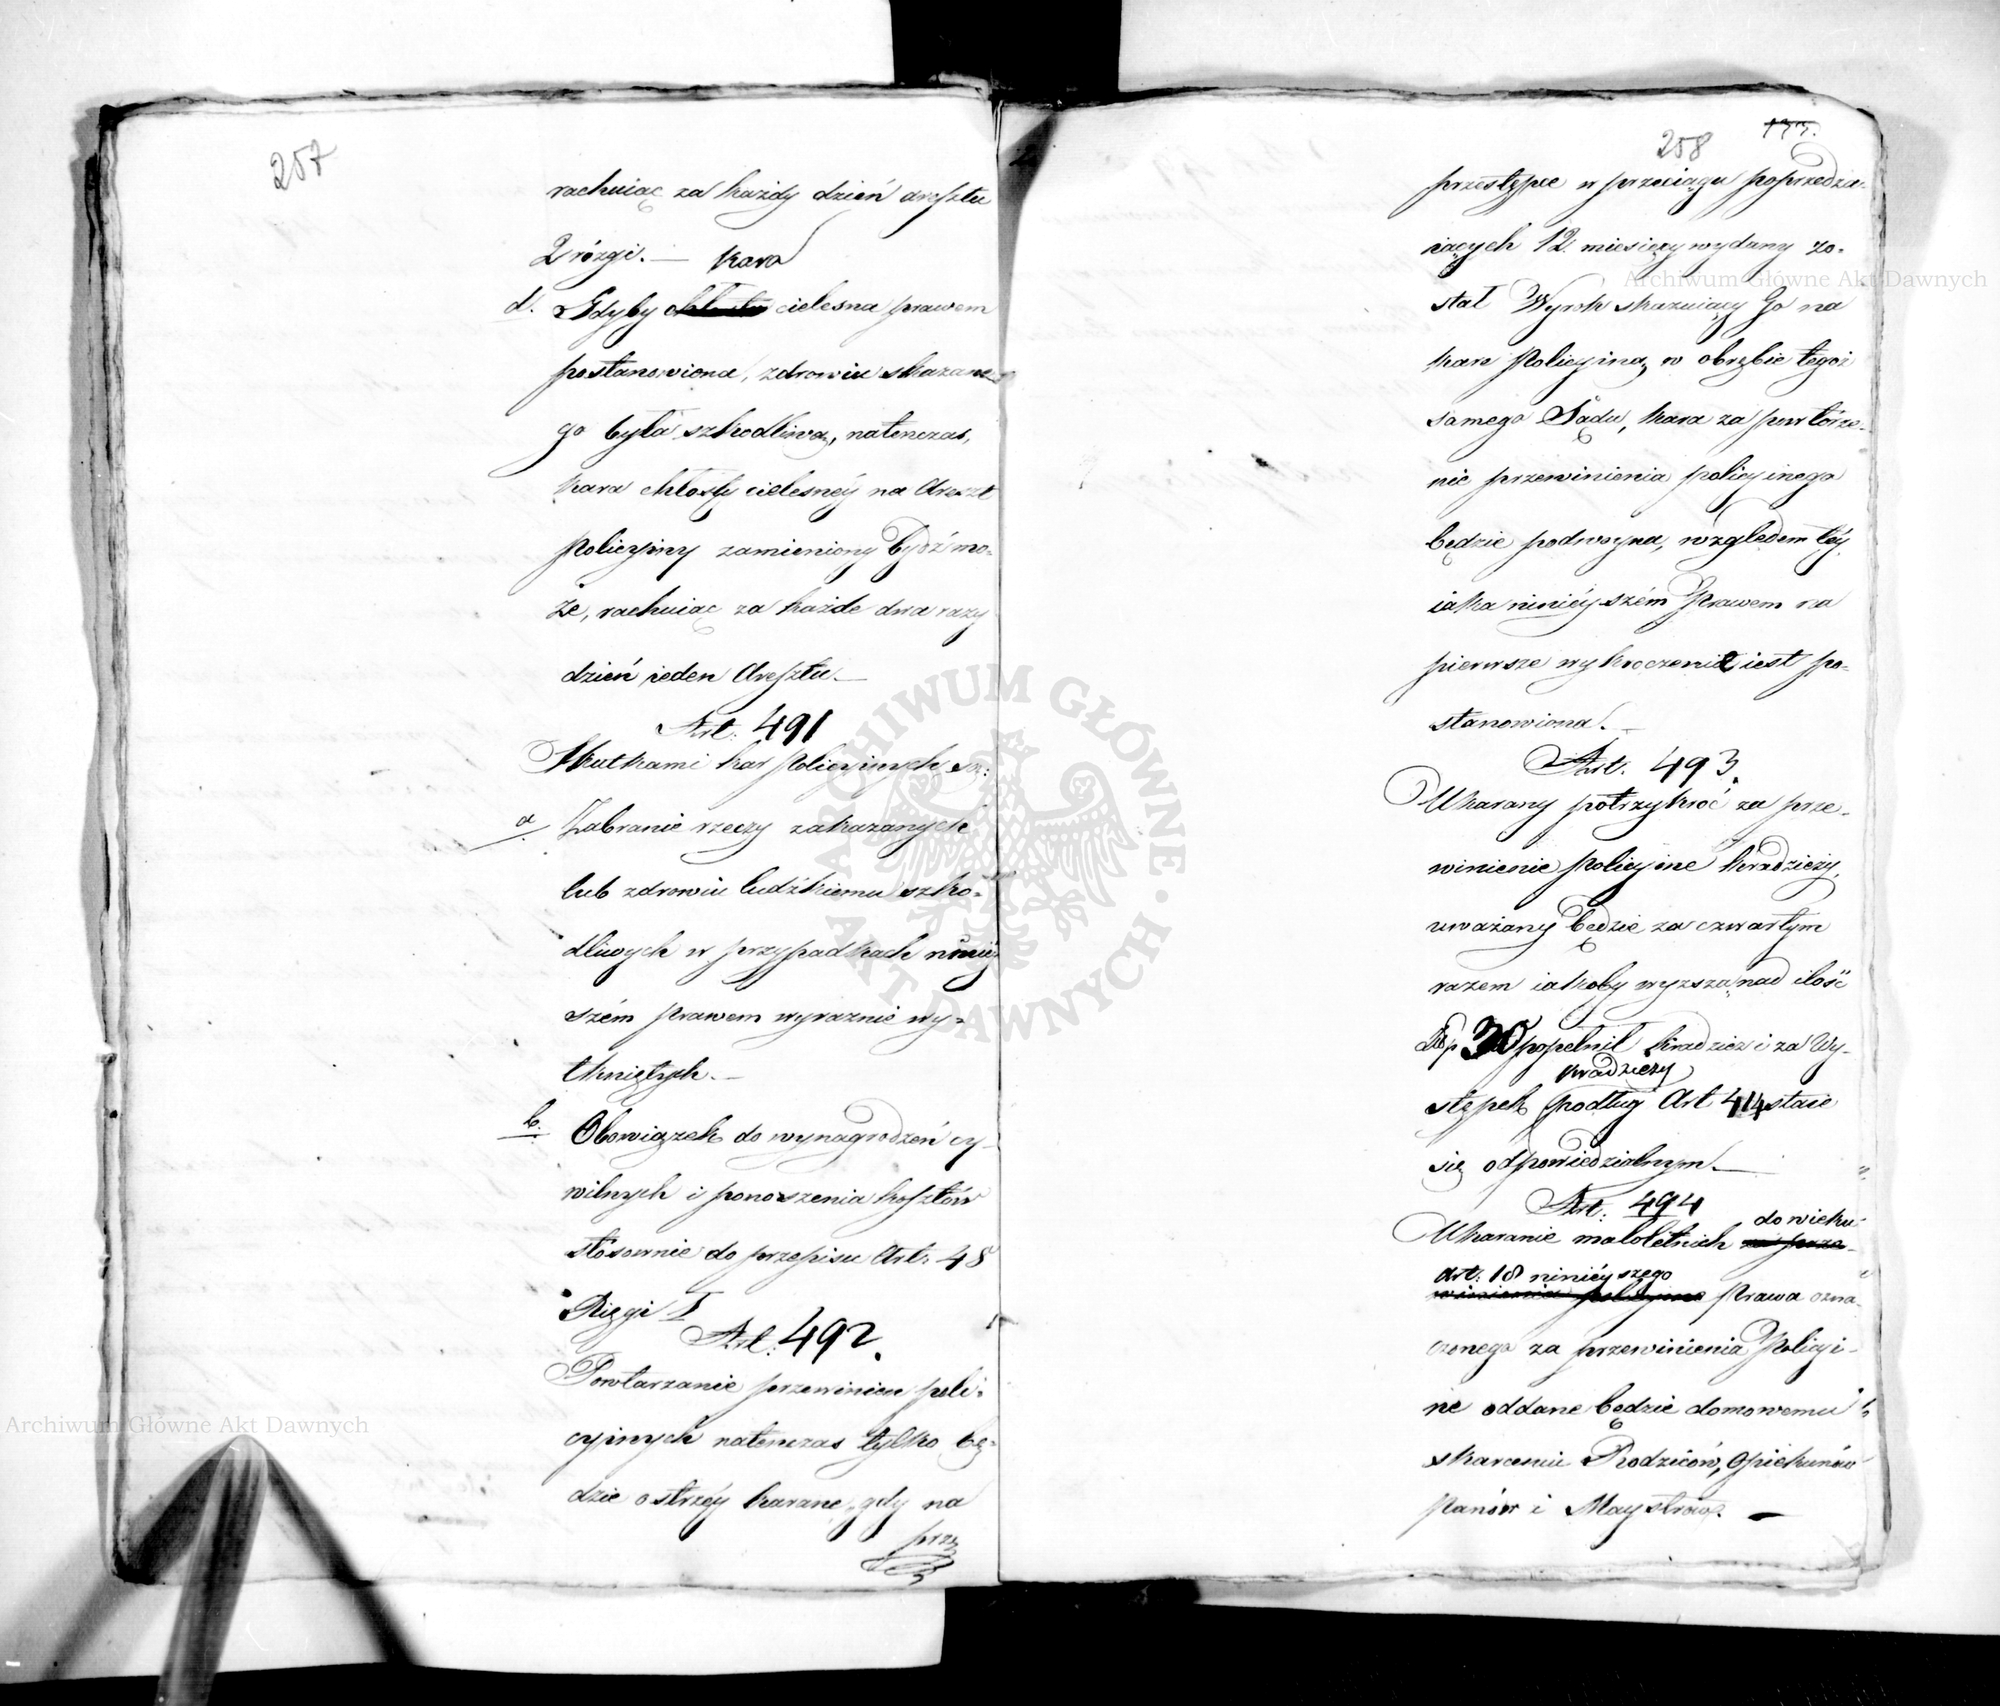 257
rachuiąc za każdy dzień aresztu
2 rózgi. — kara
d. Gdyby chłosta cielesna prawem
postanowiona, zdrowiu skazane
go była szkodliwą, natenczas,
kara chłosty cielesnéy na Areszt
Policyiny zamieniony bydź mo-
że, rachuiąc za każde dwa razy
dzień ieden Aresztu. —
Art. 491
Skutkami kar Policyinych są:
a Zabranie rzeczy zakazanych
lub zdrowiu ludzkiemu szko-
dliwych w przypadkach niniéy
szém prawem wyraznie wy-
tkniętych. —
b. Obowiązek do wynagrodzeń cy-
wilnych i ponoszenia kosztów
stosownie do przepisu Art. 48
Xięgi I
Art: 492.
Powtarzanie przewinień poli-
cyinych natenczas tylko bę-
dzie ostrzéy karane, gdy na
prze
258 133.
przestępce w przeciągu poprzedza-
iących 12 miesięcy wydany zo-
stał Wyrok skazuiący Go na
kare Policyiną w obrębie tegoż
samego Sądu, kara za powtórze-
nie przewinienia policyinego
będzie podwoyna, względem téy
iaka ninieyszém Prawem na
pierwsze wykroczenie iest po-
stanowiona. —
Art. 493.
Ukarany potrzykroć za prze-
winienie policyine kradzieży,
uważany będzie za czwartym
razem iakoby wyzszą nad ilość
Złp 30 popełnił kradzież i za Wy-
kradzieży
stępek podług Art 414 staie
się odpowiedzialnym. —
Art: 494
Ukaranie małoletnich za prze- do wieku
Art: 18 niniéyszego
winienia policyine Prawa ozna-
czonego za przewinienia Policyi-
ne oddane będzie domowemu
skarceniu Rodziców, Opiekunów
Panów i Maystrów. —
Archiwum Główne Akt Dawnych
Archiwum Główne Akt Dawnych
ARCHIWUM GŁÓWNE AKT DAWNYCH